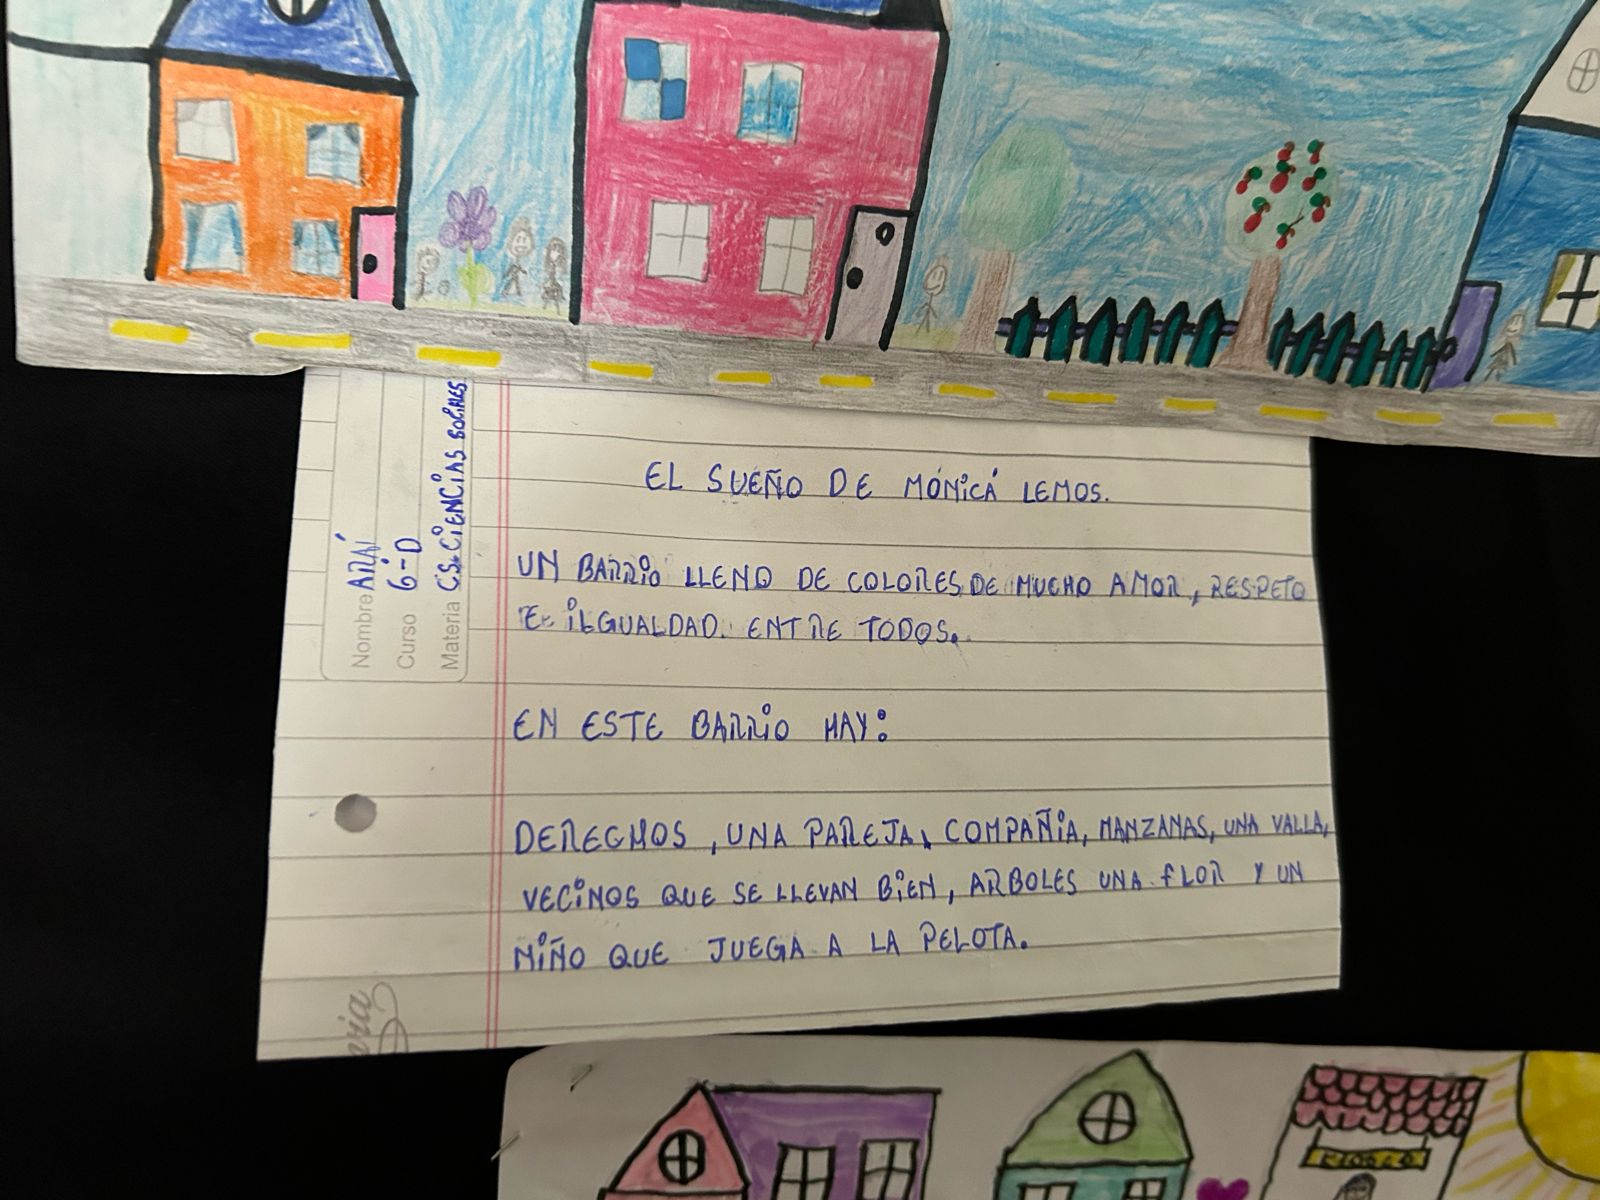 EL SUEÑO DE MÓNICA LEMOS.
UN BARRIO LLENO DE COLORES, DE MUCHO AMOR, RESPETO
E IGUALDAD ENTRE TODOS.
EN ESTE BARRIO HAY:
DERECHOS, UNA PAREJA, COMPAÑIA, MANZANAS, UNA VALLA,
VECINOS QUE SE LLEVAN BIEN, ARBOLES UNA FLOR Y UN
NIÑO QUE JUEGA A LA PELOTA.
Nombre ARAÍ
Curso 6-D
Materia CS. CIENCIAS SOCIALES
KIOSCO